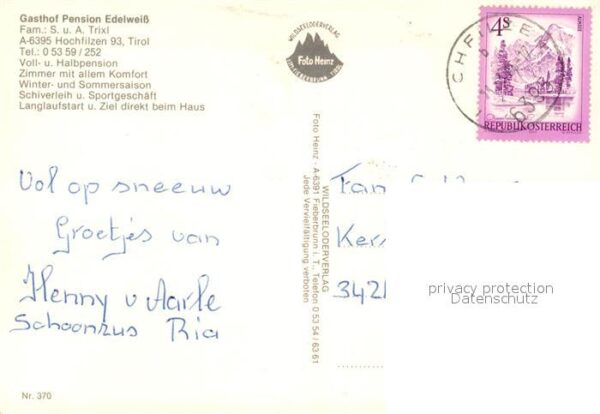 Gasthof Pension Edelweiß
Fam.: S. u. A. Trixl
A-6395 Hochfilzen 93, Tirol
Tel.: 0 53 59 / 252
Voll- u. Halbpension
Zimmer mit allem Komfort
Winter- und Sommersaison
Schiverleih u. Sportgeschäft
Langlaufstart u. Ziel direkt beim Haus
Vol op sneeuw
Groetjes van
Henny v Aarle
Schoonzus Ria
Nr. 370
WILDSEELODERVERLAG
Foto Heinz
FIEBERBRUNN TIROL
WILDSEELODERVERLAG
Foto Heinz · A-6391 Fieberbrunn i. T., Telefon 0 53 54 / 63 61
Jede Vervielfältigung verboten
4S
REPUBLIK ÖSTERREICH
6395
Fam
342
privacy protection
Datenschutz